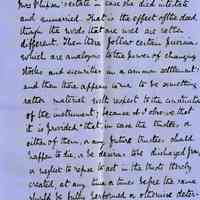 Mrs Phipson's estate in case she died intestate
and unmarried. That is the effect of the deed
though the words that are used are rather
different. Then there follow certain provisions
which are analogous to the power of changing
stocks and securities in a common settlement.
and then there appears to me to be something
rather material with respect to the constitution
of the instrument, because I observe that
it is provided "that in case the trustees or
either of them, or any future trustees should
happen to die, or be desirous to be discharged from,
or neglect or refuse to act in the trusts thereby
created, at any time or times before the same
should be fully performed or otherwise deter-